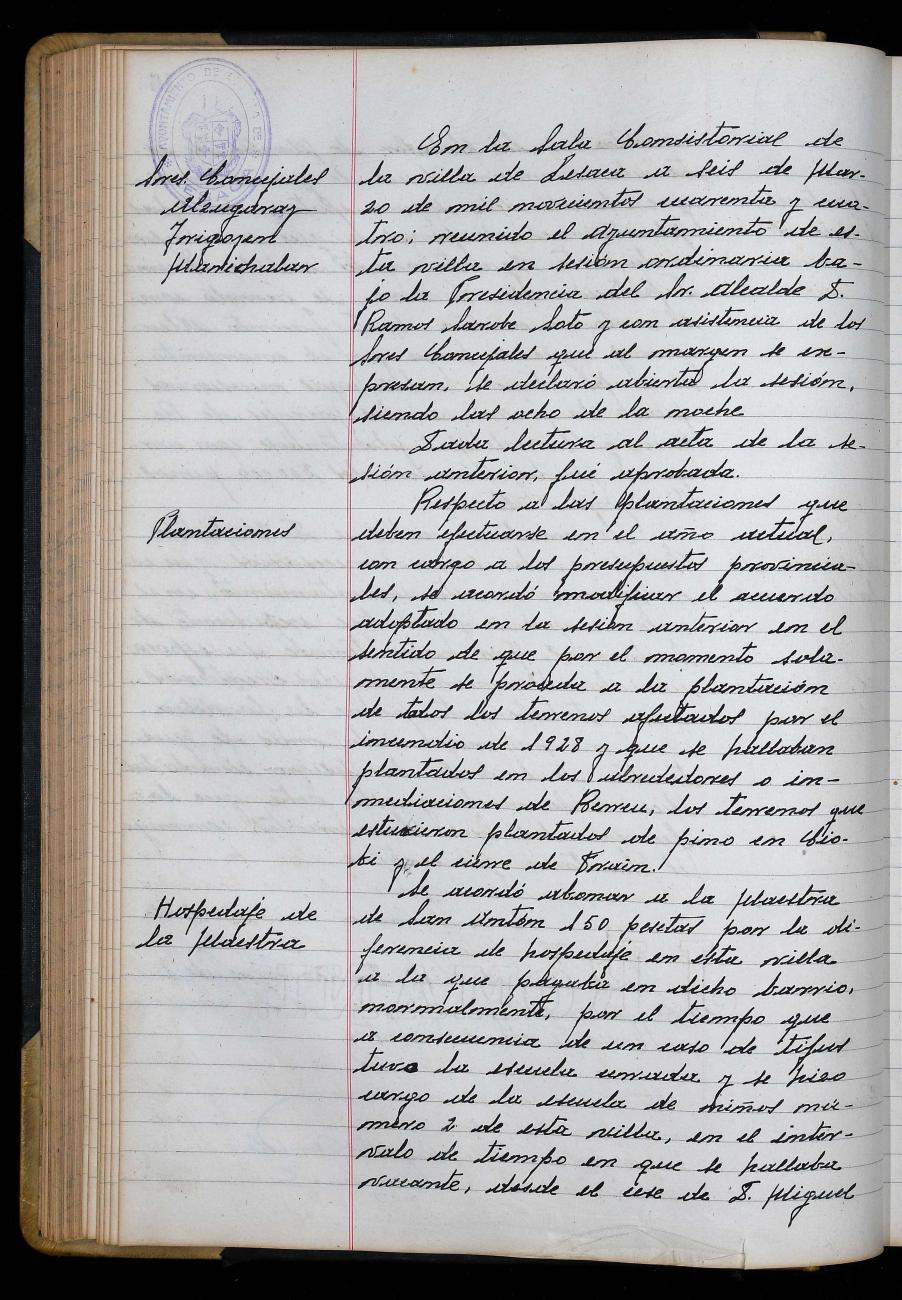 AYUNTAMIENTO DE
Sres. Concejales
Alzugaray
Irigoyen
Marichalar
En la Sala Consistorial de
la villa de Lesaca a seis de Mar-
zo de mil novecientos cuarenta y cua-
tro; reunido el Ayuntamiento de es-
ta villa en sesión ordinaria ba-
jo la Presidencia del Sr. Alcalde D.
Ramos Sarobe Soto y con asistencia de los
Sres Concejales que al margen se ex-
presan, se declaró abierta la sesión,
siendo las ocho de la noche
Dada lectura al acta de la se-
sión anterior, fué aprobada.
Plantaciones
Respecto a las plantaciones que
deben efectuarse en el año actual,
con cargo a los presupuestos provincia-
les, se acordó modificar el acuerdo
adoptado en la sesión anterior en el
sentido de que por el momento sola-
mente se proceda a la plantación
de todos los terrenos afectados por el
incendio de 1928 y que se hallaban
plantados en los alrededores o in-
mediaciones de Berreu, los terrenos que
estuvieron plantados de pino en Bio-
bi y el cierre de Frain.
Hospedaje de
la Maestra
Se acordó abonar a la Maestra
de San Antón 150 pesetas por la di-
ferencia de hospedaje en esta villa
a la que pagaba en dicho barrio,
normalmente, por el tiempo que
a consecuencia de un caso de tifus
tuvo la escuela cerrada y se hizo
cargo de la escuela de niños nú-
mero 2 de esta villa, en el inter-
valo de tiempo en que se hallaba
vacante, desde el cese de D. Miguel